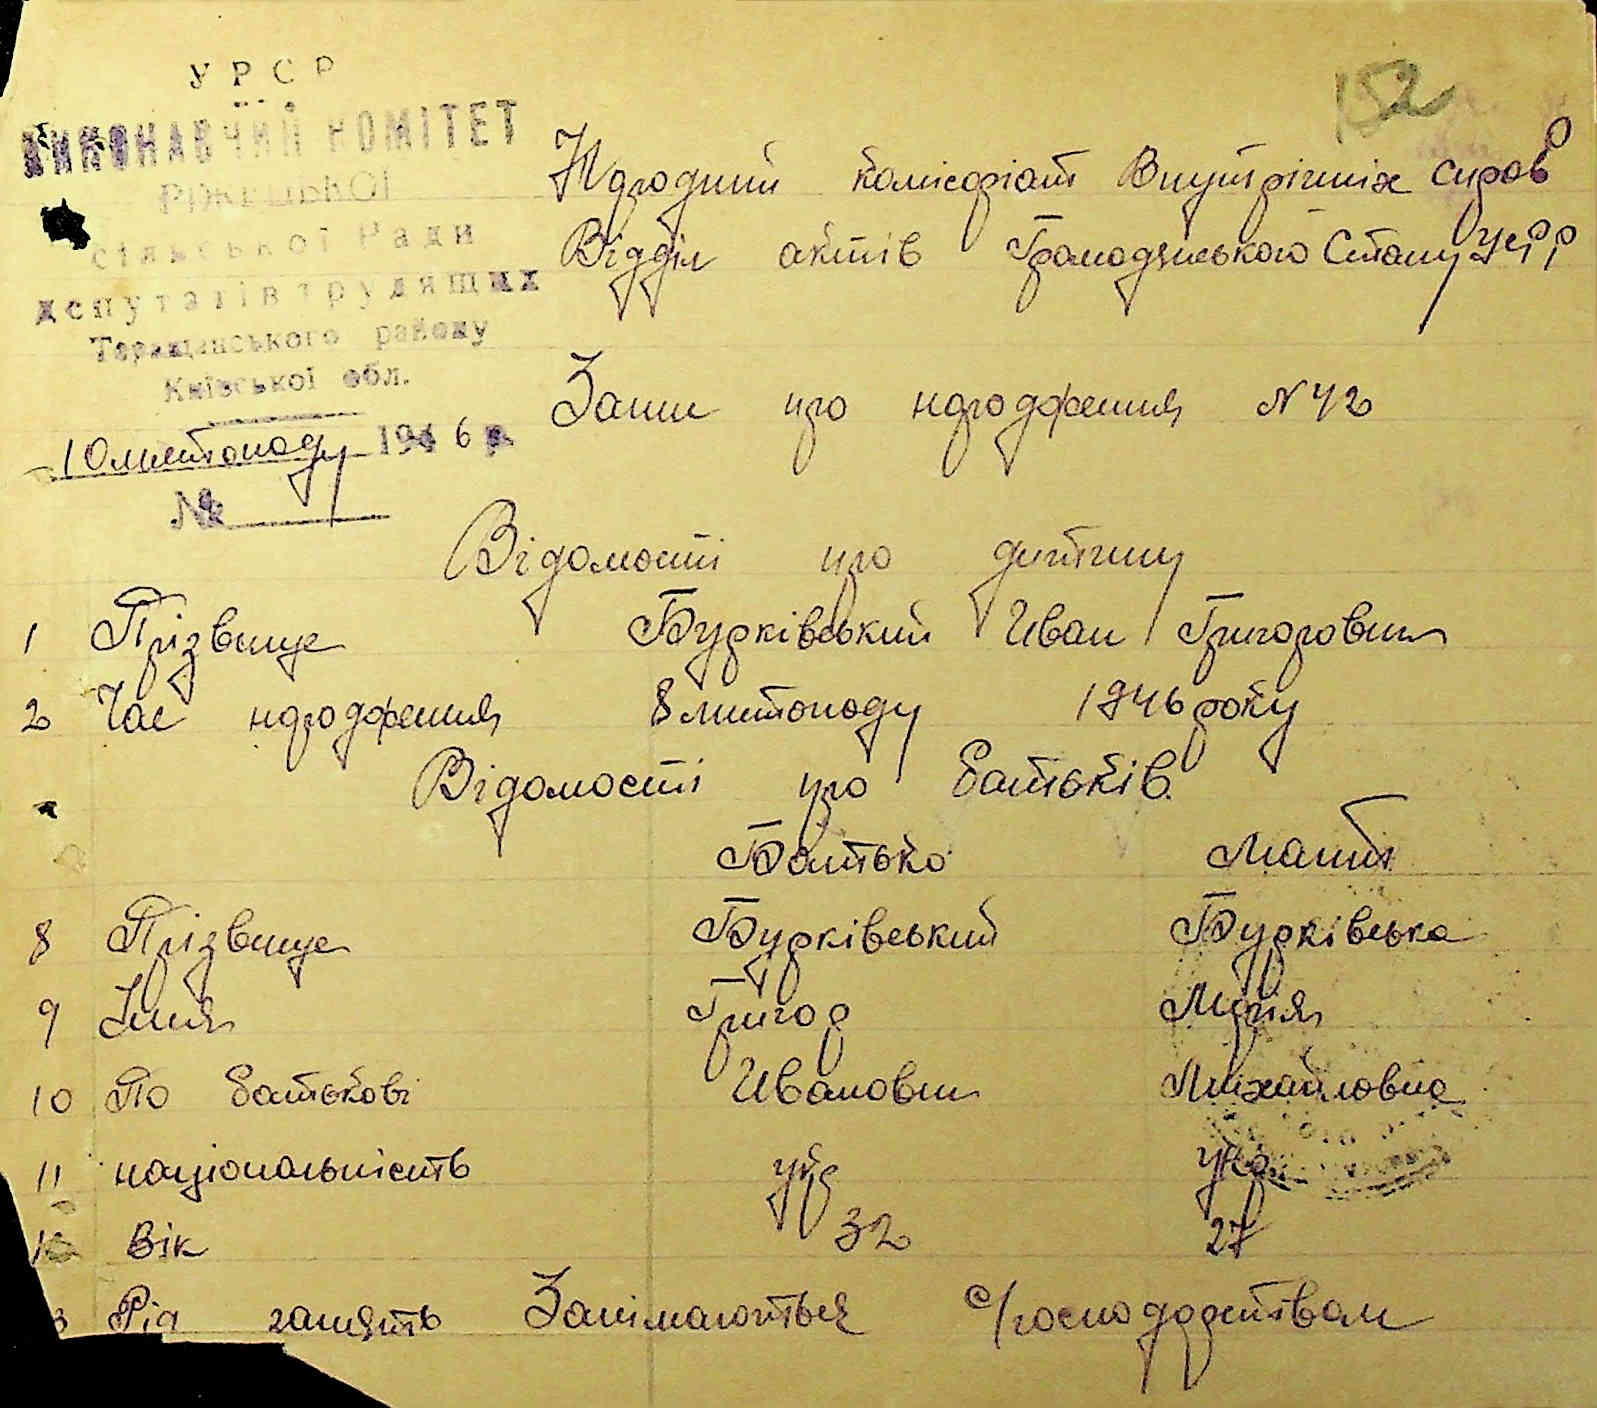 УРСР
ВИКОНАВЧИЙ КОМІТЕТ
сільської Ради
депутатів трудящих
Таращанського району
Київської обл.
10 листопаду 1946 р.
№
152
Народний комісаріат Внутрішніх справ
Відділ актів Громадянського Стану УСРР
Запис про народження N 42
Відомості про дитину
1 Прізвище Бурківський Иван Григорович
2 Час народження 8 листопаду 1946 року
Відомості про батьків
Батько Мати
8 Прізвище Бурківський Бурківська
9 Імия Григор Марія
10 По батькові Иванович Михайловна
11 національність укр укр
12 Вік 32 27
3 Рід занять Занімаються с/господарством